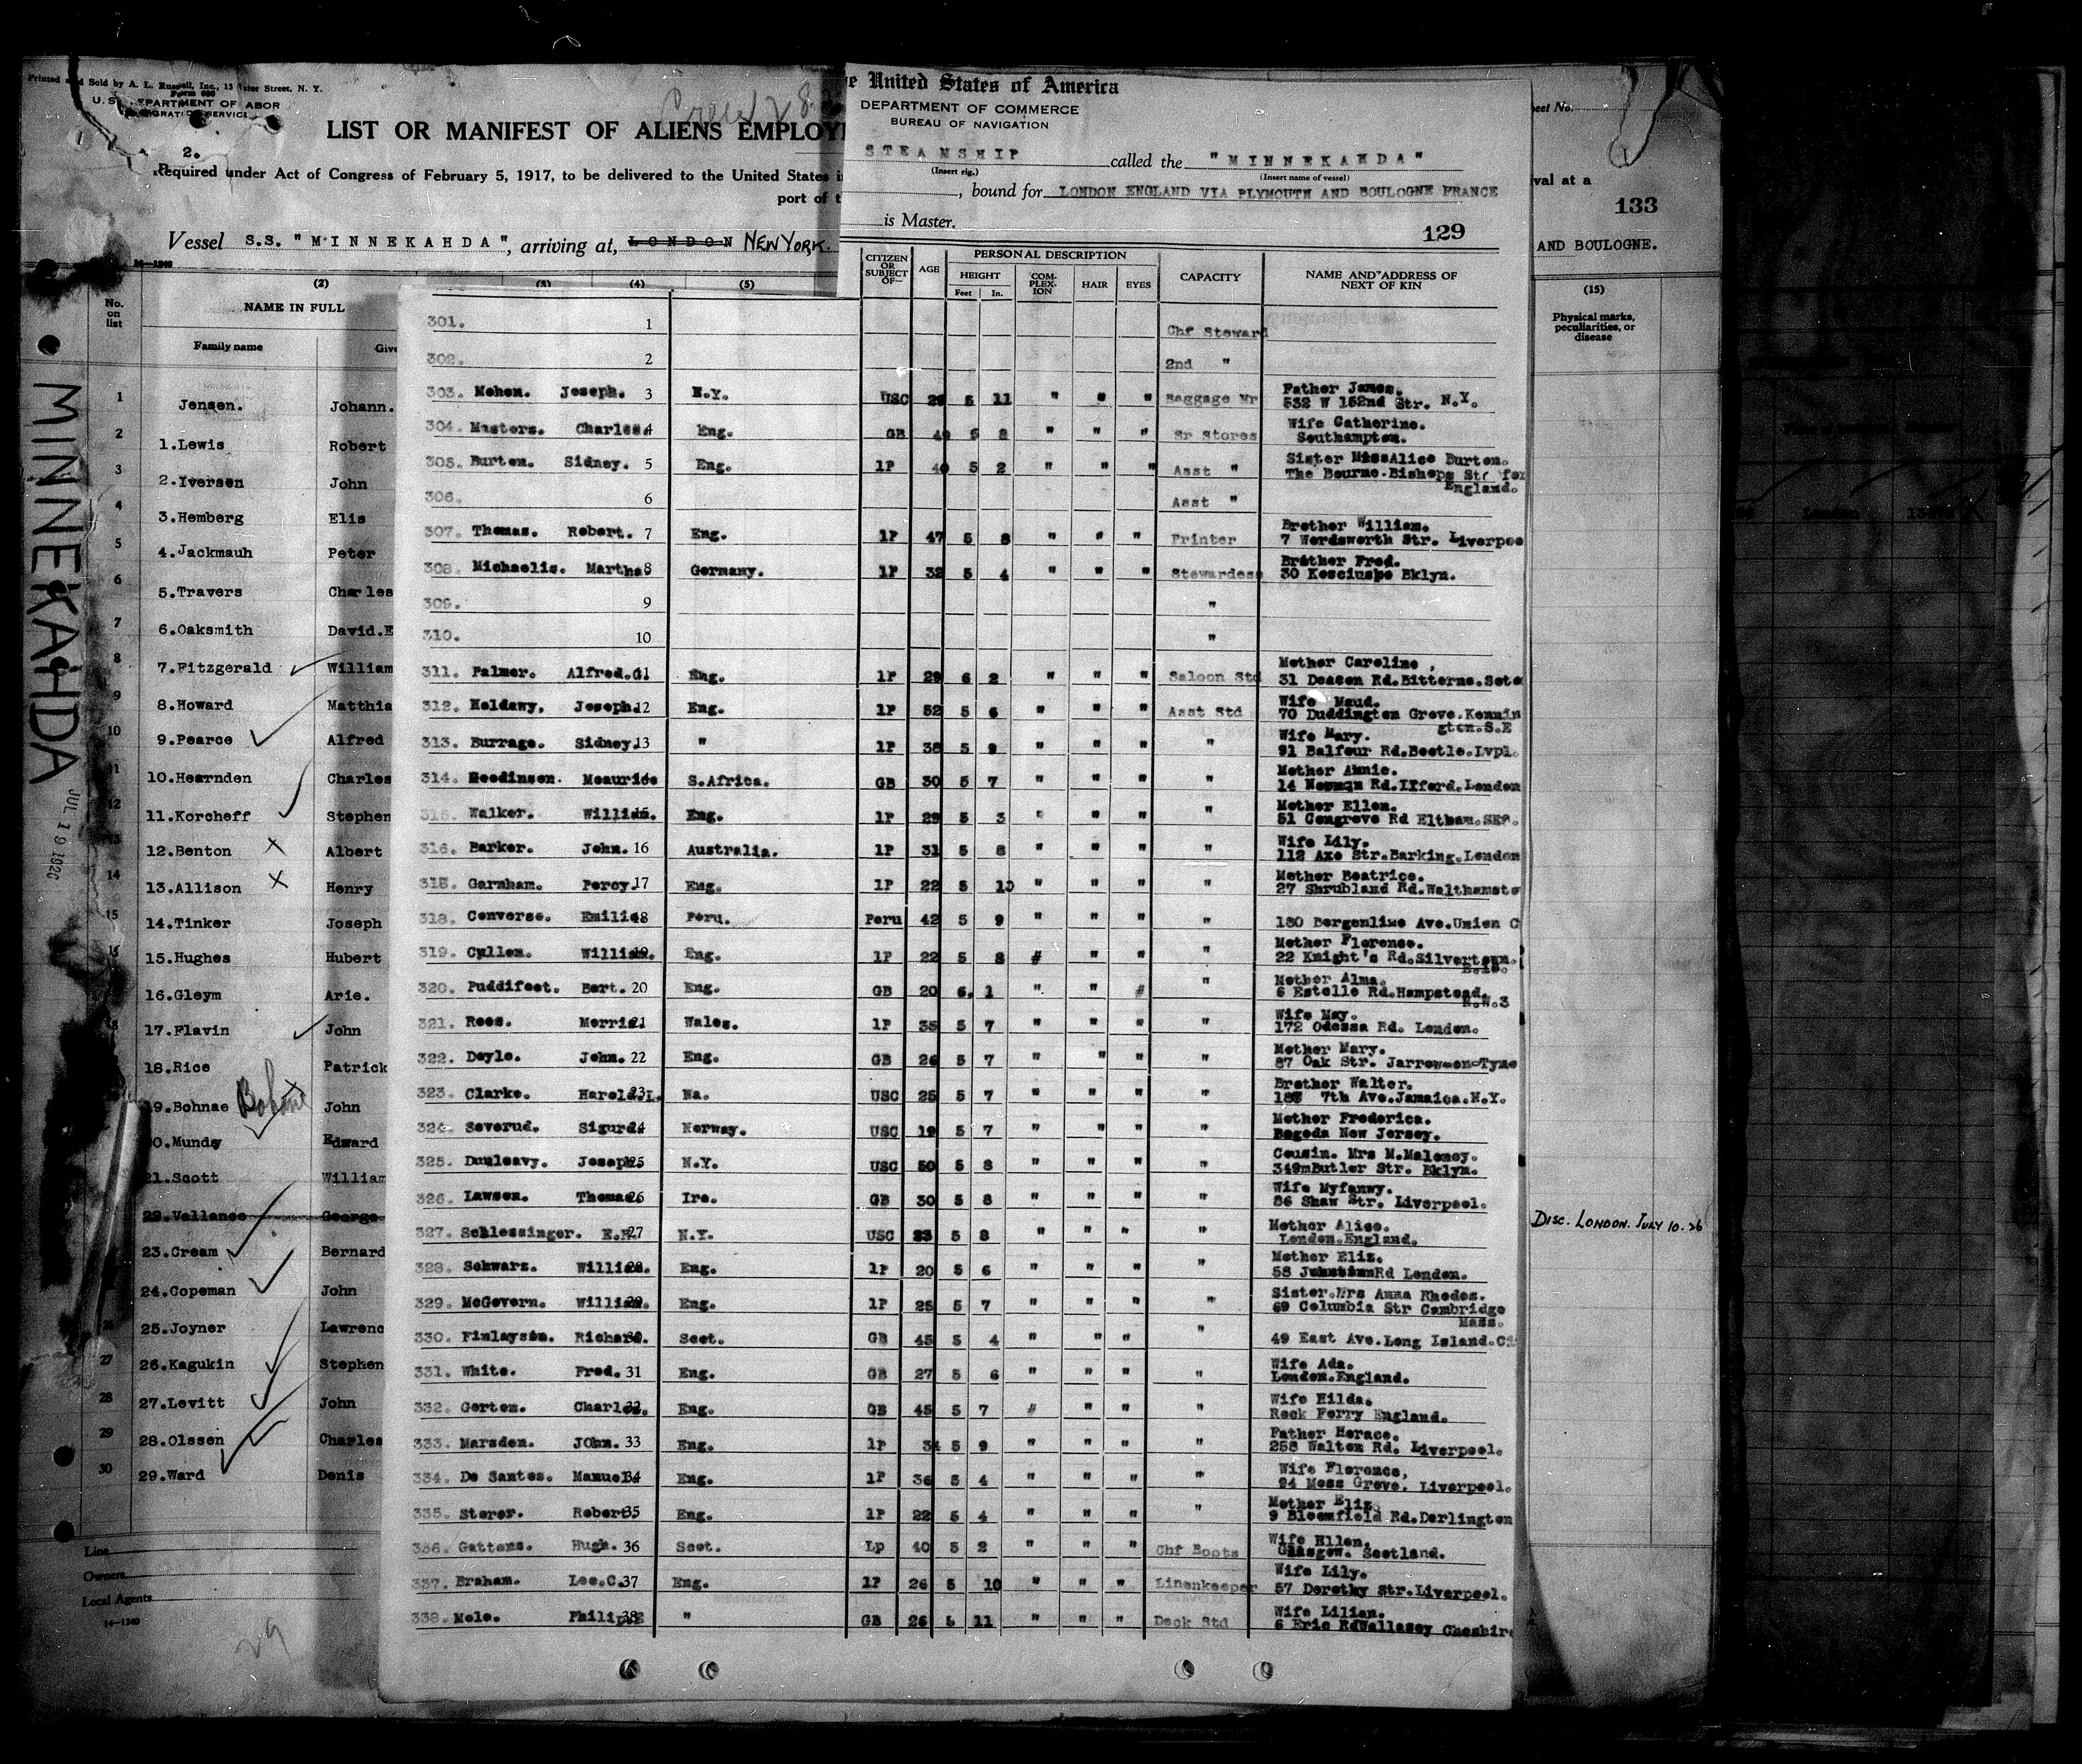 Printed and Sold by A. L. Russell, Inc., 13 Water Street, N. Y.
Form 680
U.S. DEPARTMENT OF LABOR
IMMIGRATION SERVICE
2.
LIST OR MANIFEST OF ALIENS EMPLOY
Required under Act of Congress of February 5, 1917, to be delivered to the United States i
port of t
Vessel S.S. "MINNEKAHDA", arriving at, LONDON NEW YORK.
United States of America
DEPARTMENT OF COMMERCE
BUREAU OF NAVIGATION
STEAMSHIP called the "MINNEKAHDA"
(Insert rig.) (Insert name of vessel)
, bound for LONDON ENGLAND VIA PLYMOUTH AND BOULOGNE FRANCE
is Master.
129
eet No.
val at a
133
AND BOULOGNE.
(15)
Physical marks, peculiarities, or disease
DISC. LONDON. JULY 10.26
MINNEKAHDA
JUL 19 1926
No. on list
(2) (3) (4) (5)
NAME IN FULL
Family name Give
1 Jensen. Johann.
2 1.Lewis Robert
3 2.Iversen John
4 3.Hemberg Elis
5 4.Jackmauh Peter
6 5.Travers Charles
7 6.Oaksmith David.E
8 7.Fitzgerald William
9 8.Howard Matthia
10 9.Pearce Alfred
11 10.Hearnden Charles
12 11.Korcheff Stephen
13 12.Benton Albert
14 13.Allison Henry
15 14.Tinker Joseph
15.Hughes Hubert
16.Gleym Arie.
18 17.Flavin John
18.Rice Patrick
19.Bohnae John
Mundy Edward
21.Scott William
22.Vallance George
23.Cream Bernard
24.Copeman John
25.Joyner Lawrenc
27 26.Kagukin Stephen
28 27.Levitt John
29 28.Olssen Charles
30 29.Ward Denis
Line
Owners
Local Agents
14—1240
29
CITIZEN OR SUBJECT OF— AGE PERSONAL DESCRIPTION CAPACITY NAME AND ADDRESS OF NEXT OF KIN
HEIGHT COMPLEXION HAIR EYES
Feet In.
301. 1 Chf Steward
302. 2 2nd "
303. Mohen. Joseph. 3 N.Y. USC 5 11 " " " Baggage Mr Father James. 532 W 152nd Str. N.Y.
304. Masters. Charles. 4 Eng. GB 5 8 " " " Sr Stores Wife Catherine. Southampton.
305. Burton. Sidney. 5 Eng. 1P 5 2 " " " Asst " Sister MissAlice Burton. The Bourne.Bishops Str England.
306. 6 Asst "
307. Thomas. Robert. 7 Eng. 1P 47 5 8 " " " Printer Brother William. 7 Wordsworth Str. Liverpoo
308. Michaelis. Martha 8 Germany. 1P 32 5 4 " " " Stewardess Brother Fred. 30 Kosciuspo Bklyn.
309. 9 "
310. 10 "
311. Palmer. Alfred.G. 11 Eng. 1P 29 6 2 " " " Saloon Std Mother Caroline, 31 Deacon Rd.Bitterne.Soto
312. Holdawy. Joseph. 12 Eng. 1P 52 5 6 " " " Asst Std Wife Maud. 70 Duddington Grove.Kennin gton.S.E
313. Burrage. Sidney. 13 " 1P 38 5 9 " " " " Wife Mary. 91 Balfour Rd.Bootle.Lvpl.
314. Meaurice S.Africa. GB 30 5 7 " " " Mother Annie. 14 Rd.Ilford.London
315. Walker. William. 15 Eng. 1P 29 5 3 " " " " Mother Ellen. 51 Congreve Rd Eltham.SE9.
316. Barker. John. 16 Australia. 1P 31 5 8 " " " " Wife Lily. 112 Axe Str.Barking.London
315. Garnham. Percy. 17 Eng. 1P 22 5 10 " " " " Mother Beatrice. 27 Shrubland Rd.Walthamsto
318. Converso. Emilio 18 Peru. Peru 42 5 9 " " " " 180 Bergenline Ave.Union C
319. Cullen. William. 19 Eng. 1P 22 5 8 # " " " Mother Florence. 22 Knight's Rd.Silvertown.
320. Puddifoot. Bert. 20 Eng. GB 20 6. 1 " " # " Mother Alma. 6 Estelle Rd.Hampstead. N.W.3
321. Rees. Morris. 21 Wales. 1P 35 5 7 " " " " Wife May. 172 Odessa Rd. London.
322. Doyle. John. 22 Eng. GB 26 5 7 " " " " Mother Mary. 87 Oak Str. Jarrow=on=Tyne
323. Clarke. Harold.L. 23 Na. USC 25 5 7 " " " " Brother Walter. 7th Ave.Jamaica.N.Y.
324. Severud. Sigurd. 24 Norway. USC 19 5 7 " " " " Mother Frederica. Bogoda New Jersey.
325. Dunleavy. Joseph. 25 N.Y. USC 50 5 8 " " " " Cousin. Mrs M.Maloney. 349mButler Str. Bklyn.
326. Lawson. Thomas. 26 Ire. GB 30 5 8 " " " " Wife Myfanwy. 86 Shaw Str. Liverpool.
327. Schlessinger. 27 N.Y. USC 23 5 8 " " " " Mother Alice. London.England.
328. Schwarz. William. 28 Eng. 1P 20 5 6 " " " " Mother Eliz. 58 Rd London.
329. McGovern. William. 29 Eng. 1P 25 5 7 " " " " Sister.Mrs Anna Rhodes. 69 Columbia Str Cambridge Mass.
330. Finlayson. Richard. 30 Scot. GB 45 5 4 " " " " 49 East Ave.Long Island.Ci
331. White. Fred. 31 Eng. GB 27 5 6 " " " " Wife Ada. London.England.
332. Gorton. Charles. 32 Eng. GB 45 5 7 # " " " Wife Hilda. Rock Ferry England.
333. Marsden. JOhn. 33 Eng. 1P 34 5 9 " " " " Father Horace. 258 Walton Rd. Liverpool.
334. De Santos. Manuel. 34 Eng. 1P 36 5 4 " " " " Wife Florence, 94 Moss Grove. Liverpool.
335. Storer. Robert 35 Eng. 1P 22 5 4 " " " " Mother Eliz. 9 Bloomfield Rd.Darlington
336. Gattens. Hugh. 36 Scot. Lp 40 5 2 " " " Chf Boots Wife Ellen. Glasgow. Scotland.
337. Braham. Lee.C. 37 Eng. 1P 26 5 10 " " " Linenkeeper Wife Lily. 57 Dorothy Str.Liverpool.
338. Mole. Philip 38 " GB 26 5 11 " " " Deck Std Wife Lilian. 6 Eric RdWallasey Cheshire